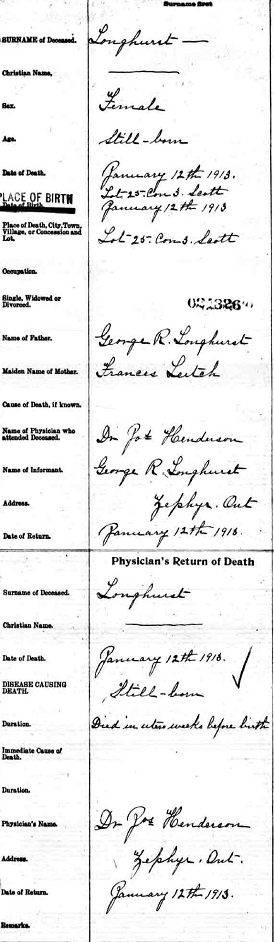 Surname first
SURNAME of Deceased. Longhurst —
Christian Name. ———
Sex. Female
Age. Still-born
Date of Death. January 12th 1913.
PLACE OF BIRTH Lot 25. Con 3. Scott
Date of Birth. January 12th 1913
Place of Death, City, Town, Lot 25. Con 3. Scott
Village, or Concession and
Lot.
Occupation.
Single, Widowed or
Divorced.
Name of Father. George R. Longhurst
Maiden Name of Mother. Frances Leitch
Cause of Death, if known.
Name of Physician who
attended Deceased. Dr Jos Henderson
Name of Informant. George R. Longhurst
Address. Zephyr. Ont
Date of Return. January 12th 1913.
Physician's Return of Death
Surname of Deceased. Longhurst
Christian Name. ———
Date of Death. January 12th 1913.
DISEASE CAUSING
DEATH. Still-born
Duration. Died in utero weeks before birth
Immediate Cause of
Death.
Duration.
Physician's Name. Dr Jos Henderson
Address. Zephyr. Ont.
Date of Return. January 12th 1913.
Remarks.